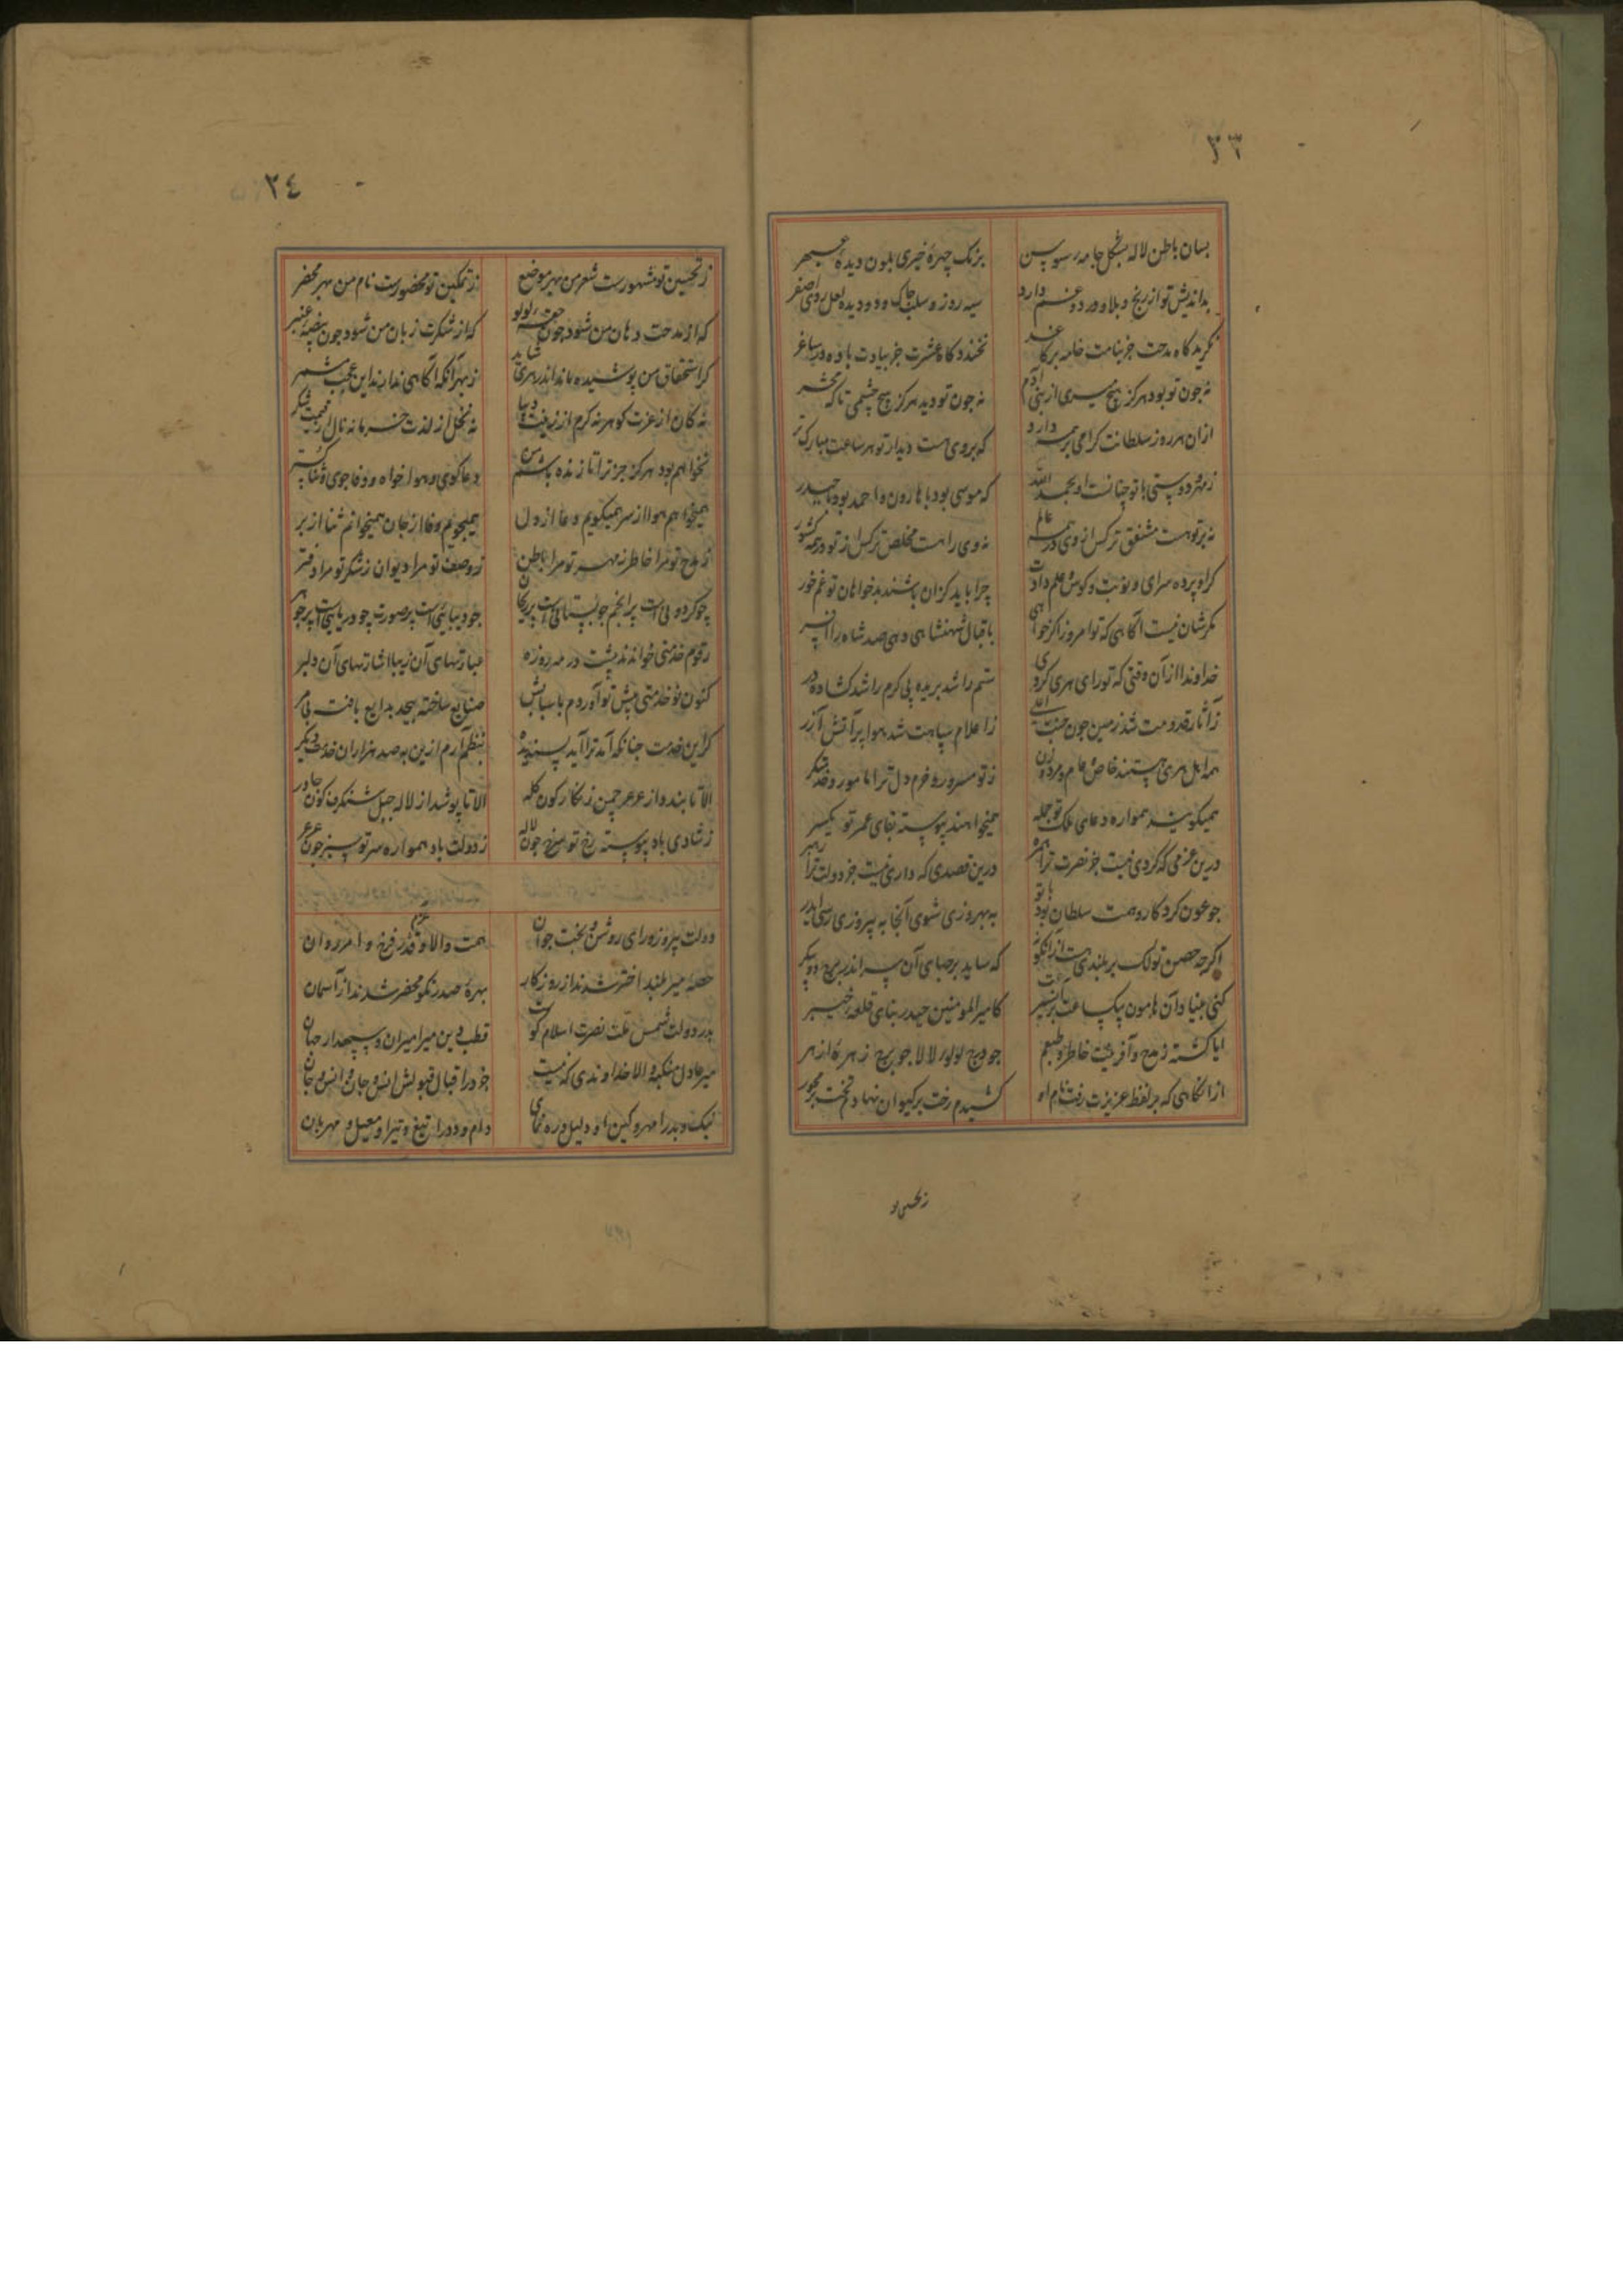 ٣٣
بسان باطن لاله بشکل جامه سوسن برنک چهرهٔ خیری بلون دیدهٔ عبهر
بداندیش تو از رنج و بلا و درد و غم دارد سیه روز و سلب چاک و دو دیده لعل و روی اصفر
نکرید کاه مدحت جز بنامت خامه بر کاغد نخندد کاه عشرت جز بیادت باده در ساغر
نه چون تو بود هرکز هیچ میری از بنی آدم نه چون تو دید هرکز هیچ چشمی تا که محشر
ازان هر روز سلطانت کرامی تر همی دارد که بروی هست دیدار تو هر ساعت مبارک تر
ز مهر و دوستی با تو چنانست او بحمد الله که موسی بود با هارون و احمد بود با حیدر
نه بر تو هست مشفق تر کس از وی در همه عالم نه وی را هست مخلص تر کس از تو در همه کشور
کرا و پرده سرای و نوبت و کوس و علم دادت چرا باید کزان باشند بدخواهان تو غم خور
مکرشان نیست آکاهی که تو امروز اکر خواهی باقبال شهنشاهی دهی صد شاه را افسر
خداوندا از آن وقتی که تو رای هری کردی ستم را شد بریده پی کرم را شد کشاده در
ز آثار قدومت شد زمین چون جنت اعلی ز اعلام سپاهت شد هوا پر آتش آزر
همه اهل هری هستند خاص و عام و مرد و زن ز تو مسرور و خرم دل ترا مامور و خدمتکر
همیکویند همواره دعای ملک تو جمله همیخواهند پیوسته بقای عمر تو یکسر
درین عزمی که کردی نیست جز نصرت ترا همره درین قصدی که داری نیست جز دولت ترا رهبر
چو عون کردکار و همت سلطان بود با تو به بهروزی شوی آنجا به پیروزی رسی ایدر
اکرچه حصن تولک بر بلندی هست از انکونه که ساید بر حبای آن سر اندر برج دو پیکر
کنی بنیاد آن هامون بیک ساعت کامیر المومنین حیدر بنای قلعه خیبر
ایا کشته ز مدح و آفرینت خاطر و طبعم چو درج لولو لالا چو برج زهرهٔ ازهر
از انکاهی که بر لفظ عزیزت رفت نام او کشیدم رخت بر کیوان نهادم تخت بر محور
ز تحسین تو
٣٤
ز تحسین تو مشهورست شعر من بهر موضع ز تمکین تو مخضورست نام من بهر محضر
که از مدحت دهان من شود چون حقهٔ لولو که از شکرت زبان من شود چون بیضهٔ عنبر
کر استحقاق من پوشیده ماند اندر هری شاید ز بهر آنکه آکاهی ندارند این عجب مشمر
نه کان از عزت کوهر نه کرم از زینت دیبا نه نحل از لذت خرما نه نال از قیمت شکر
نخواهم بود هرکز جز ترا تا زنده باشم من دعا کوی و هواخواه و وفاجوی و ثنا کستر
همیخواهم هوا از سر همیکویم دعا از دل همیجویم وفا از جان همیخوانم ثنا از بر
ز مدح تو مرا خاطر ز مهر تو مرا باطن ز وصف تو مرا دیوان ز شکر تو مرا دفتر
چو کردونی است پر انجم چو بستانی است پر ریحان چو دیبایی است پر صورت چو دریایی است پر جوهر
رقوم خدمتی خواندند پیشت در مه روزه عبارتهای آن زیبا اشارتهای آن دلبر
کنون نو خدمتی پیش تو آوردم صنایع ساخته بیحد بدایع بافته بی مر
کر این خدمت چنانکه آمد ترا آید پسندیده بنظم آرم ازین به صد هزاران خدمت دیکر
الا تا بندد از عرعر چمن زنکارکون کله الا تا پوشد از لاله جبل شنکرف کون چادر
ز شادی باد پیوسته رخ تو سرخ چون لاله ز دولت باد همواره سر تو سبز چون عرعر
دولت پیروز و رای روشن و بخت جوان همت والا و قدر فرخ و امر روان
حصهٔ میر بلند اختر شدند از روزکار بهرهٔ صدر نکو محضر شدند از آسمان
بدر دولت شمس ملت نصرت اسلام کوست قطب دین میر امیران و سپهدار جهان
میر عادل منکبه والا خداوندی که نیست جز در اقبال قبولش انس و جان و انس و جان
نیک و بد را مهر و کین او دلیل و ره نمای دام و دد را تیغ و تیر او معیل و مهربان